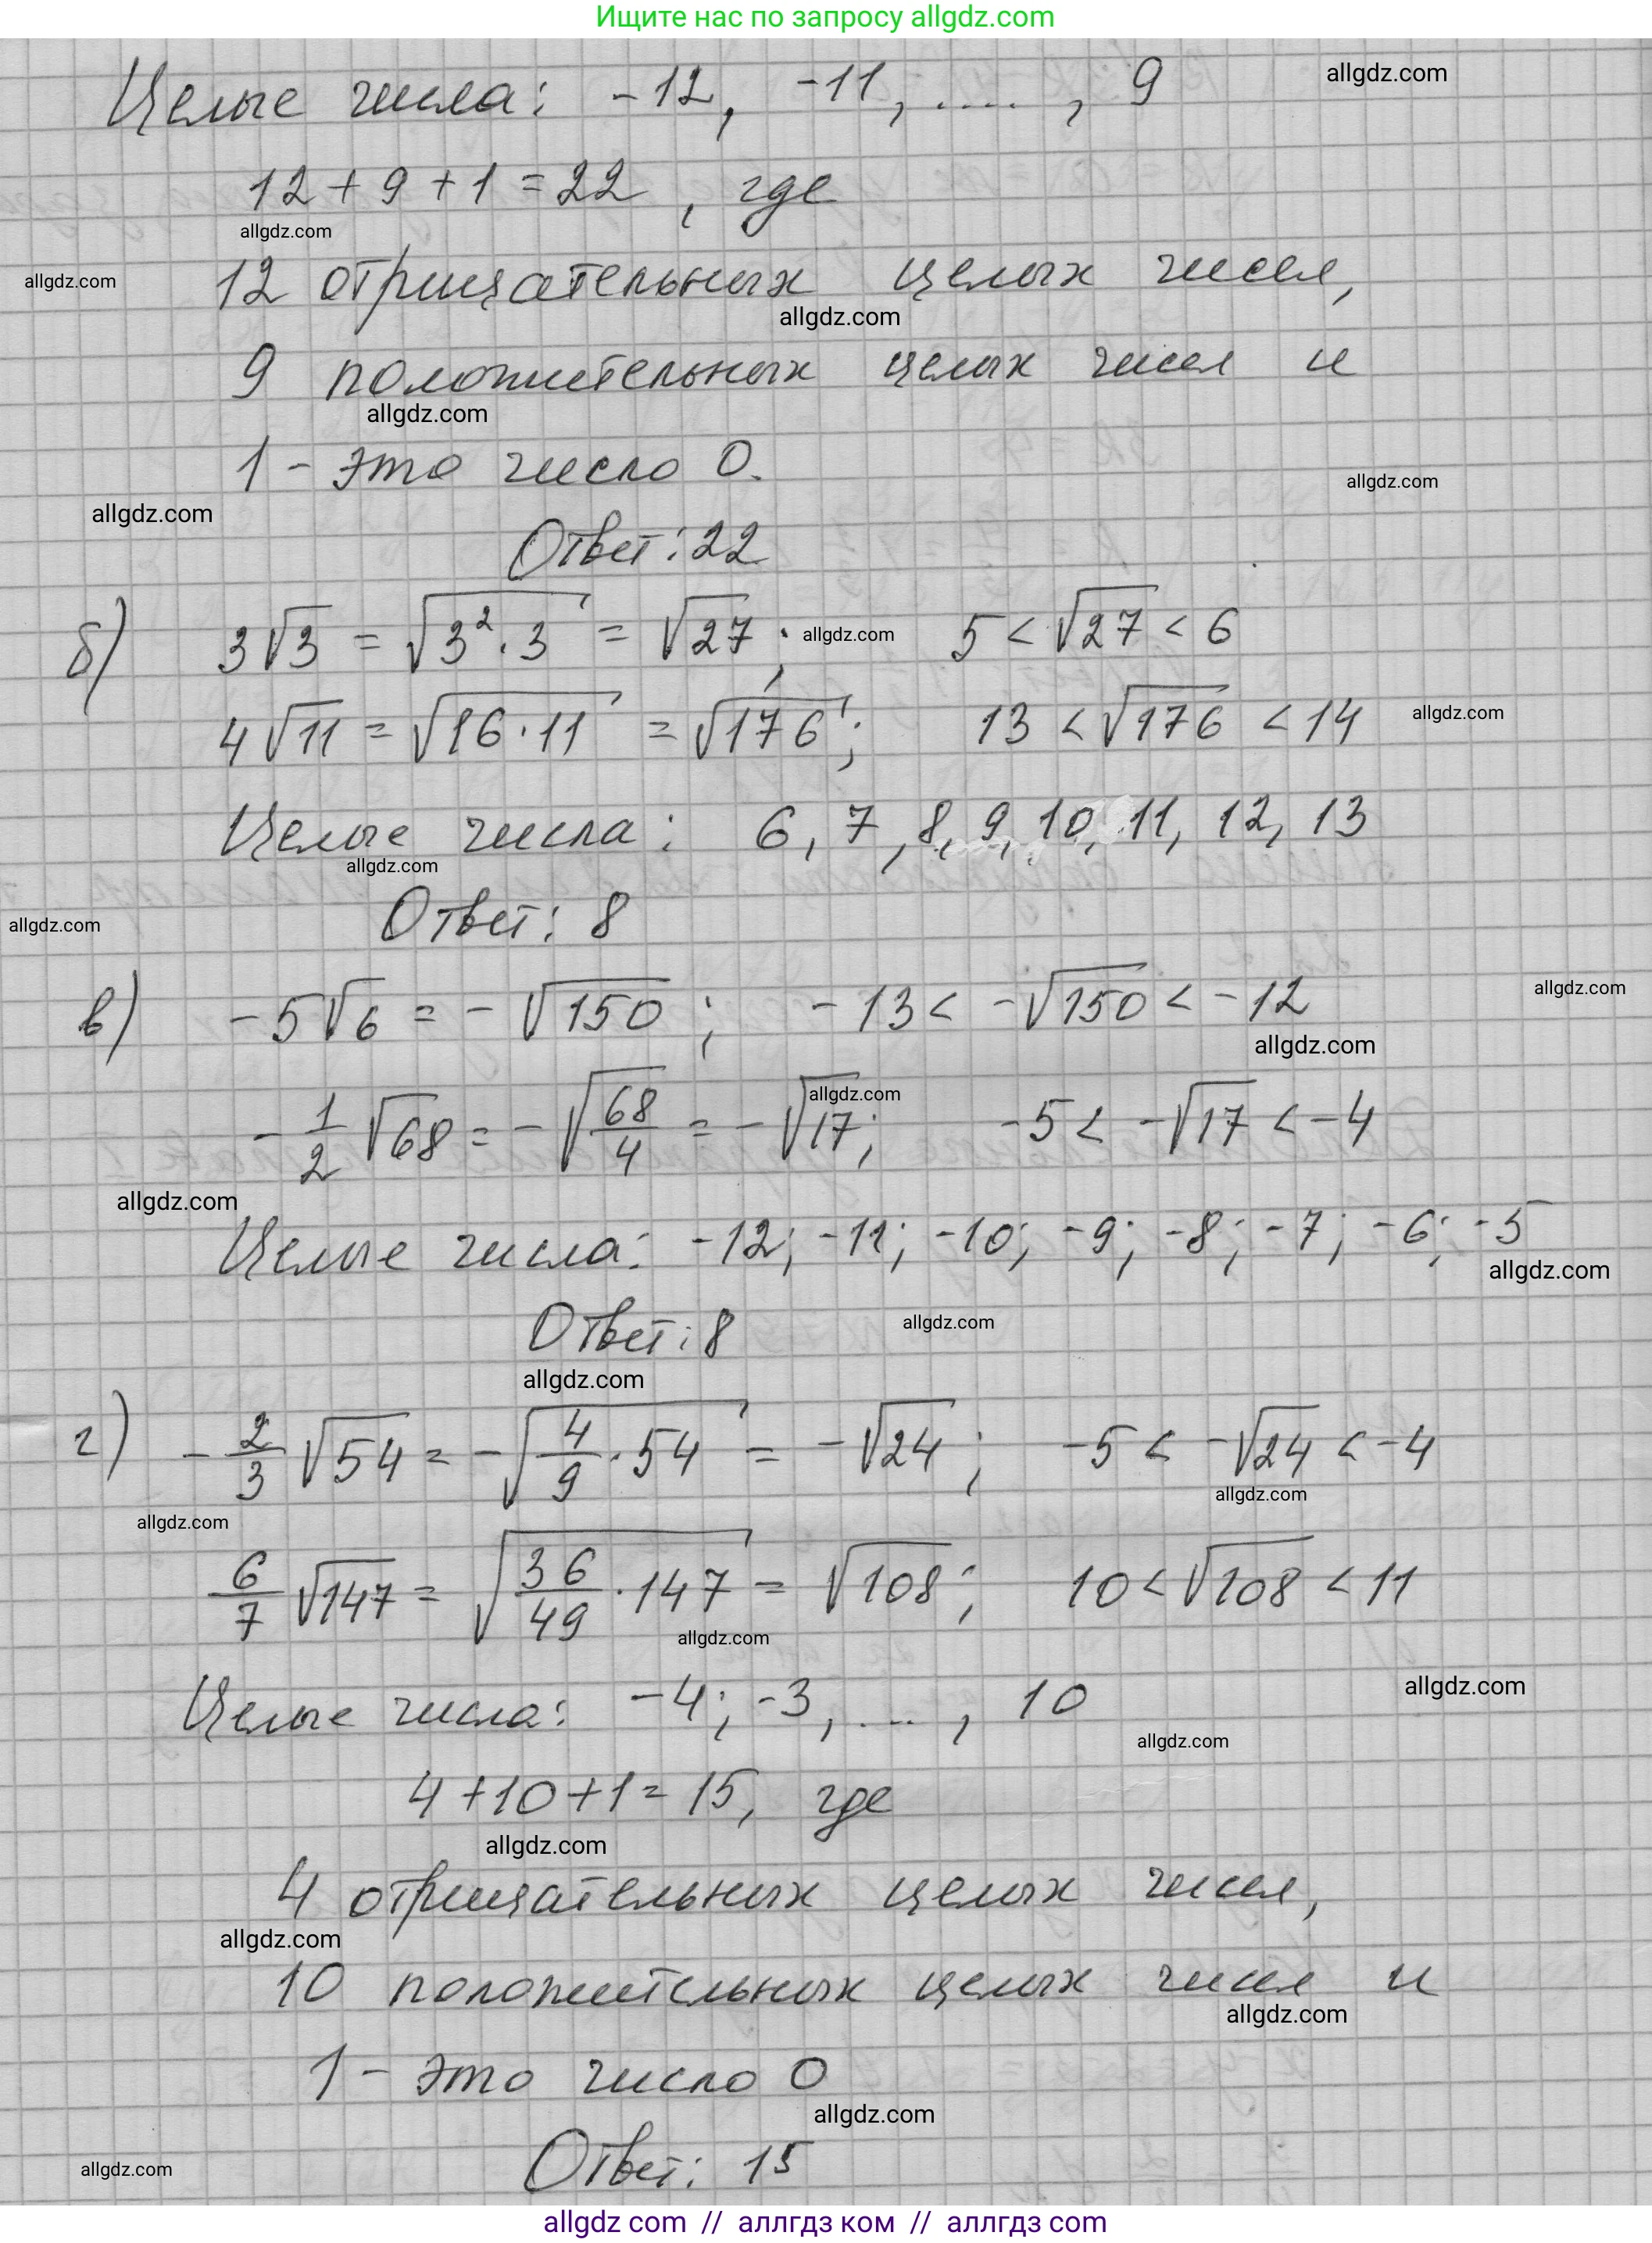 Ищите нас по запросу allgdz.com
Целые числа: -12, -11, ...., 9
allgdz.com
12 + 9 + 1 = 22, где
allgdz.com
allgdz.com
12 отрицательных целых чисел,
allgdz.com
9 положительных целых чисел и
allgdz.com
1 - это число 0.
allgdz.com
allgdz.com
Ответ: 22
б) 3√3 = √(3²·3) = √27; 5 < √27 < 6
allgdz.com
4√11 = √(16·11) = √176; 13 < √176 < 14
allgdz.com
Целые числа: 6, 7, 8, 9, 10, 11, 12, 13
allgdz.com
Ответ: 8
allgdz.com
в) -5√6 = -√150; -13 < -√150 < -12
allgdz.com
allgdz.com
-1/2 √68 = -√(68/4) = -√17; -5 < -√17 < -4
allgdz.com
allgdz.com
Целые числа: -12; -11; -10; -9; -8; -7; -6; -5
allgdz.com
Ответ: 8
allgdz.com
allgdz.com
г) -2/3 √54 = -√(4/9·54) = -√24; -5 < -√24 < -4
allgdz.com
allgdz.com
6/7 √147 = √(36/49·147) = √108; 10 < √108 < 11
allgdz.com
Целые числа: -4; -3, ...., 10
allgdz.com
allgdz.com
4 + 10 + 1 = 15, где
allgdz.com
4 отрицательных целых чисел,
allgdz.com
10 положительных целых чисел и
allgdz.com
1 - это число 0
allgdz.com
Ответ: 15
allgdz.com
allgdz com // аллгдз ком // аллгдз com